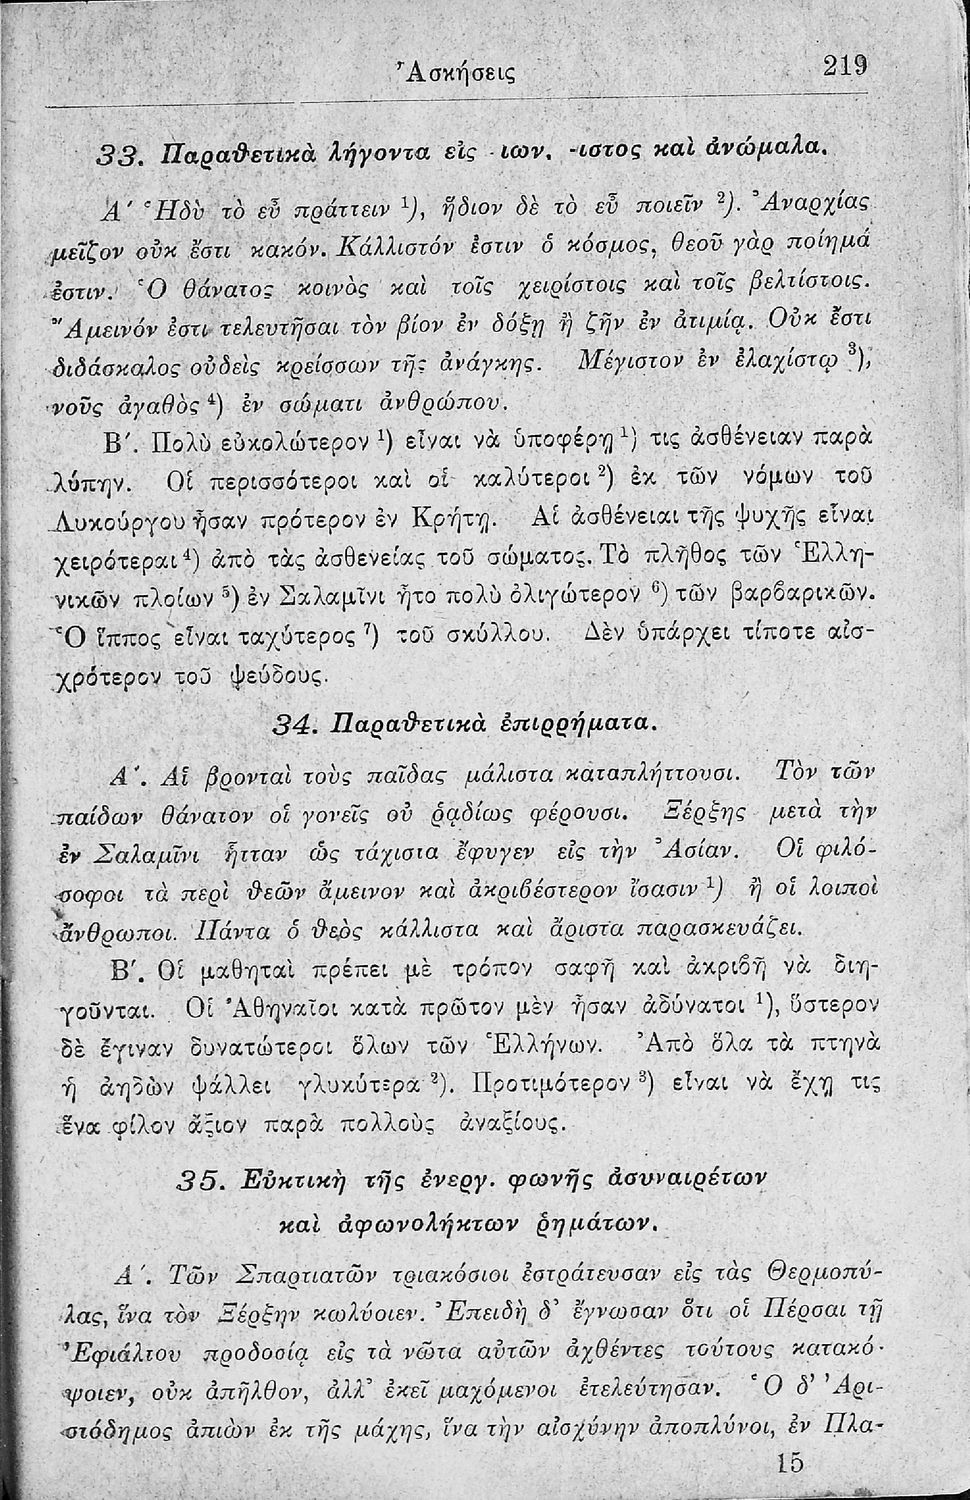 Ἀσκήσεις
219
33. Παραθετικὰ λήγοντα εἰς -ιων, -ιστος καὶ ἀνώμαλα.
Α΄ Ἡδὺ τὸ εὖ πράττειν ¹), ἥδιον δὲ τὸ εὖ ποιεῖν ²). Ἀναρχίας
μεῖζον οὐκ ἔστι κακόν. Κάλλιστόν ἐστιν ὁ κόσμος, θεοῦ γὰρ ποίημά
ἐστιν. Ὁ θάνατος κοινὸς καὶ τοῖς χειρίστοις καὶ τοῖς βελτίστοις.
Ἄμεινόν ἐστι τελευτῆσαι τὸν βίον ἐν δόξῃ ἢ ζῆν ἐν ἀτιμίᾳ. Οὐκ ἔστι
διδάσκαλος οὐδεὶς κρείσσων τῆς ἀνάγκης. Μέγιστον ἐν ἐλαχίστῳ ³),
νοῦς ἀγαθὸς ⁴) ἐν σώματι ἀνθρώπου.
Β΄. Πολὺ εὐκολώτερον ¹) εἶναι νὰ ὑποφέρῃ ¹) τις ἀσθένειαν παρὰ
λύπην. Οἱ περισσότεροι καὶ οἱ καλύτεροι ²) ἐκ τῶν νόμων τοῦ
Λυκούργου ἦσαν πρότερον ἐν Κρήτῃ. Αἱ ἀσθένειαι τῆς ψυχῆς εἶναι
χειρότεραι ⁴) ἀπὸ τὰς ἀσθενείας τοῦ σώματος. Τὸ πλῆθος τῶν Ἑλλη-
νικῶν πλοίων ⁵) ἐν Σαλαμῖνι ἦτο πολὺ ὀλιγώτερον ⁶) τῶν βαρβαρικῶν.
Ὁ ἵππος εἶναι ταχύτερος ⁷) τοῦ σκύλλου. Δὲν ὑπάρχει τίποτε αἰσ-
χρότερον τοῦ ψεύδους.
34. Παραθετικὰ ἐπιρρήματα.
Α΄. Αἱ βρονταὶ τοὺς παῖδας μάλιστα καταπλήττουσι. Τὸν τῶν
παίδων θάνατον οἱ γονεῖς οὐ ῥᾳδίως φέρουσι. Ξέρξης μετὰ τὴν
ἐν Σαλαμῖνι ἧτταν ὡς τάχιστα ἔφυγεν εἰς τὴν Ἀσίαν. Οἱ φιλό-
σοφοι τὰ περὶ θεῶν ἄμεινον καὶ ἀκριβέστερον ἴσασιν ¹) ἢ οἱ λοιποὶ
ἄνθρωποι. Πάντα ὁ θεὸς κάλλιστα καὶ ἄριστα παρασκευάζει.
Β΄. Οἱ μαθηταὶ πρέπει μὲ τρόπον σαφῆ καὶ ἀκριβῆ νὰ διη-
γοῦνται. Οἱ Ἀθηναῖοι κατὰ πρῶτον μὲν ἦσαν ἀδύνατοι ¹), ὕστερον
δὲ ἔγιναν δυνατώτεροι ὅλων τῶν Ἑλλήνων. Ἀπὸ ὅλα τὰ πτηνὰ
ἡ ἀηδὼν ψάλλει γλυκύτερα ²). Προτιμότερον ³) εἶναι νὰ ἔχῃ τις
ἕνα φίλον ἄξιον παρὰ πολλοὺς ἀναξίους.
35. Εὐκτικὴ τῆς ἐνεργ. φωνῆς ἀσυναιρέτων
καὶ ἀφωνολήκτων ῥημάτων.
Α΄. Τῶν Σπαρτιατῶν τριακόσιοι ἐστράτευσαν εἰς τὰς Θερμοπύ-
λας, ἵνα τὸν Ξέρξην κωλύοιεν. Ἐπειδὴ δ' ἔγνωσαν ὅτι οἱ Πέρσαι τῇ
Ἐφιάλτου προδοσίᾳ εἰς τὰ νῶτα αὐτῶν ἀχθέντες τούτους κατακό-
ψοιεν, οὐκ ἀπῆλθον, ἀλλ' ἐκεῖ μαχόμενοι ἐτελεύτησαν. Ὁ δ' Ἀρι-
στόδημος ἀπιὼν ἐκ τῆς μάχης, ἵνα τὴν αἰσχύνην ἀποπλύνοι, ἐν Πλα-
15